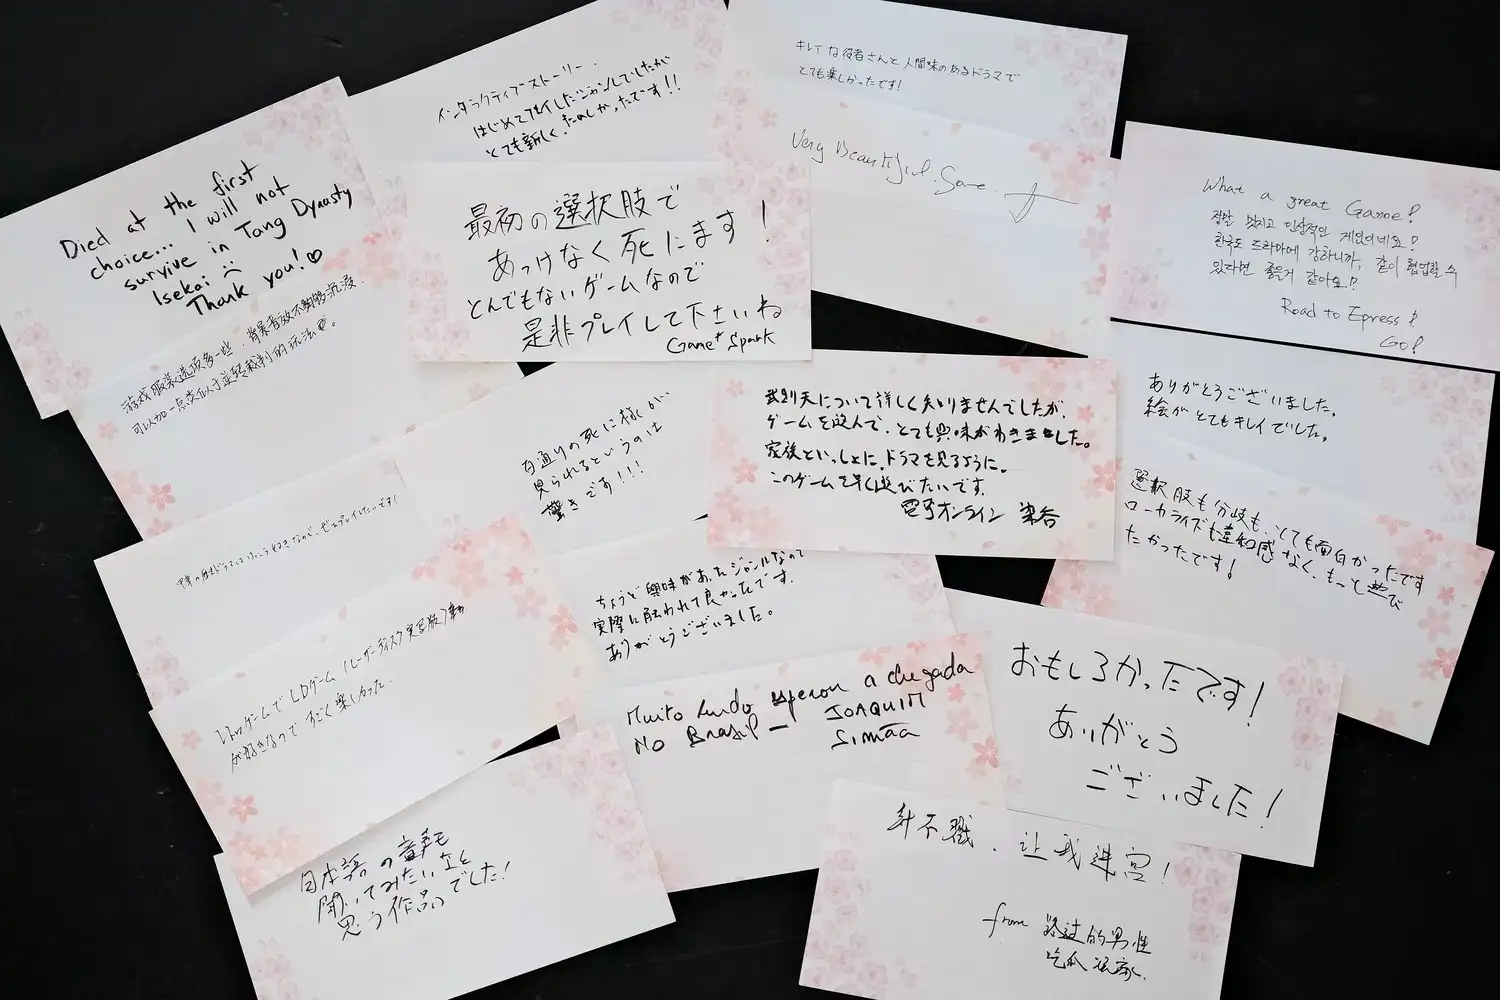 Died at the first
choice... I will not
survive in Tang Dynasty
Isekai :(
Thank you! ♡
インタラクティブストーリー、
はじめてプレイしたジャンルでしたが
とても新しく、たのしかったです!!
キレイな役者さんと人間味のあるドラマで
とても楽しかったです!
Very Beautiful Game.
What a great Game!
정말 멋지고 인상적인 게임이네요!
한국도 드라마에 강하니까, 같이 협업할 수
있다면 좋을거 같아요!
Road to Epress!
GO!
最初の選択肢で
あっけなく死にます!
とんでもないゲームなので
是非プレイして下さいね
Game*Spark
游戏服装选项多一些,背景音效不够沉浸.
可以加一点类似于逆转裁判的玩法
百通りの死に様が、
見られるというのは
驚きです!!!
武則天について詳しく知りませんでしたが、
ゲームを遊んで、とても興味がわきました。
家族といっしょに、ドラマを見るように、
このゲームを早く遊びたいです。
電撃オンライン
ありがとうございました。
絵がとてもキレイでした。
選択肢も分岐も、とても面白かったです
ローカライズも違和感なく、もっと遊び
たかったです!
ちょうど興味があったジャンルなので
実際に触われて良かったです。
ありがとうございました。
レトロゲームでLDゲーム(レーザーディスク実写版)
が好きなので すごく楽しかった.
Muito lindo esperou a chegada
No Brasil — JOAQUIM
Simãa
おもしろかったです!
ありがとう
ございました!
日本語の音声も
聞いてみたいなと
思う作品でした!
让我进宫!
from 路过的男性
吃瓜